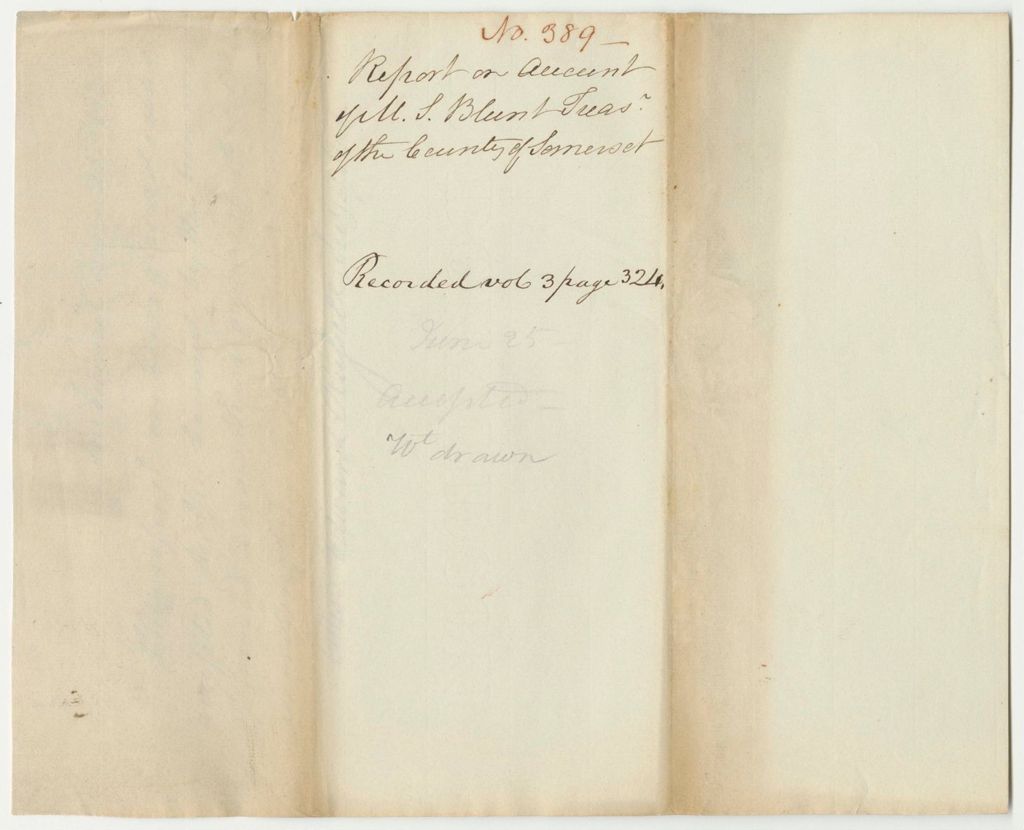 No. 389 —
Report on Account
of M. S. Blunt Treasr
of the County of Somerset
Recorded vol 3 page 324.
June 25 —
Accepted —
Wt drawn